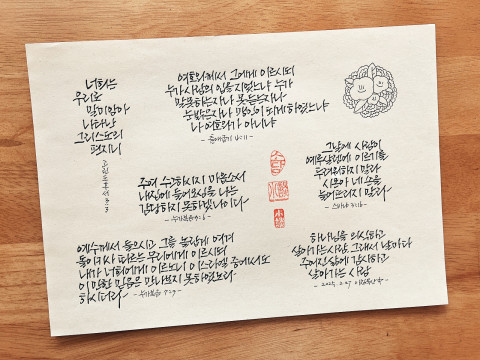 너희는
우리로
말미암아
나타난
그리스도의
편지니
고린도후서 3:3
여호와께서 그에게 이르시되
누가 사람의 입을 지었느냐 누가
말 못하는 자나 못 듣는 자나
눈 밝은 자나 맹인이 되게 하였느냐
나 여호와가 아니냐
- 출애굽기 4:11 -
주여 수고하시지 마옵소서
내 집에 들어오심을 나는
감당하지 못하겠나이다
- 누가복음 7:6 -
그날에 사람이
예루살렘에 이르기를
두려워하지 말라
시온아 네 손을
늘어뜨리지 말라
- 스바냐 3:16 -
예수께서 들으시고 그를 놀랍게 여겨
돌이키사 따르는 무리에게 이르시되
내가 너희에게 이르노니 이스라엘 중에서도
이만한 믿음은 만나보지 못하였노라
하시더라 - 누가복음 7:9 -
하나님을 의식하고
살아가는 사람, 그래서 날마다
주어진 삶에 감사하고
살아가는 사람
- 2025. 2. 27